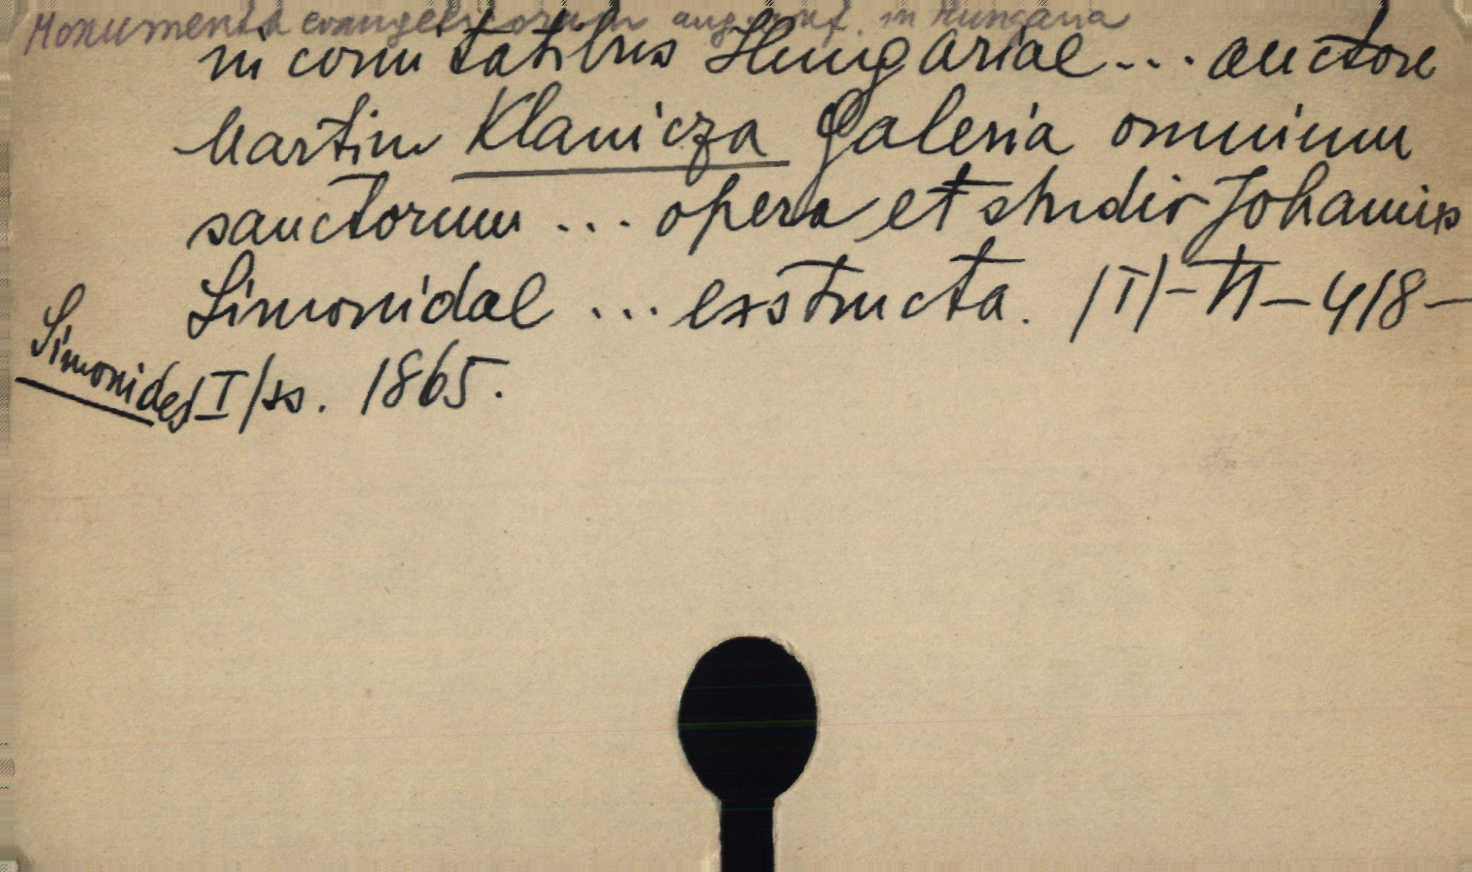 Monumenta evangelicorum aug. conf. in Hungaria
in comitatibus Hungariae ... auctore
Martin Klanicza Galeria omnium
sanctorum ... opera et studio Johannis
Simonidae ... exstructa. /I/-VI-418-
Simonides /I/ss. 1865.